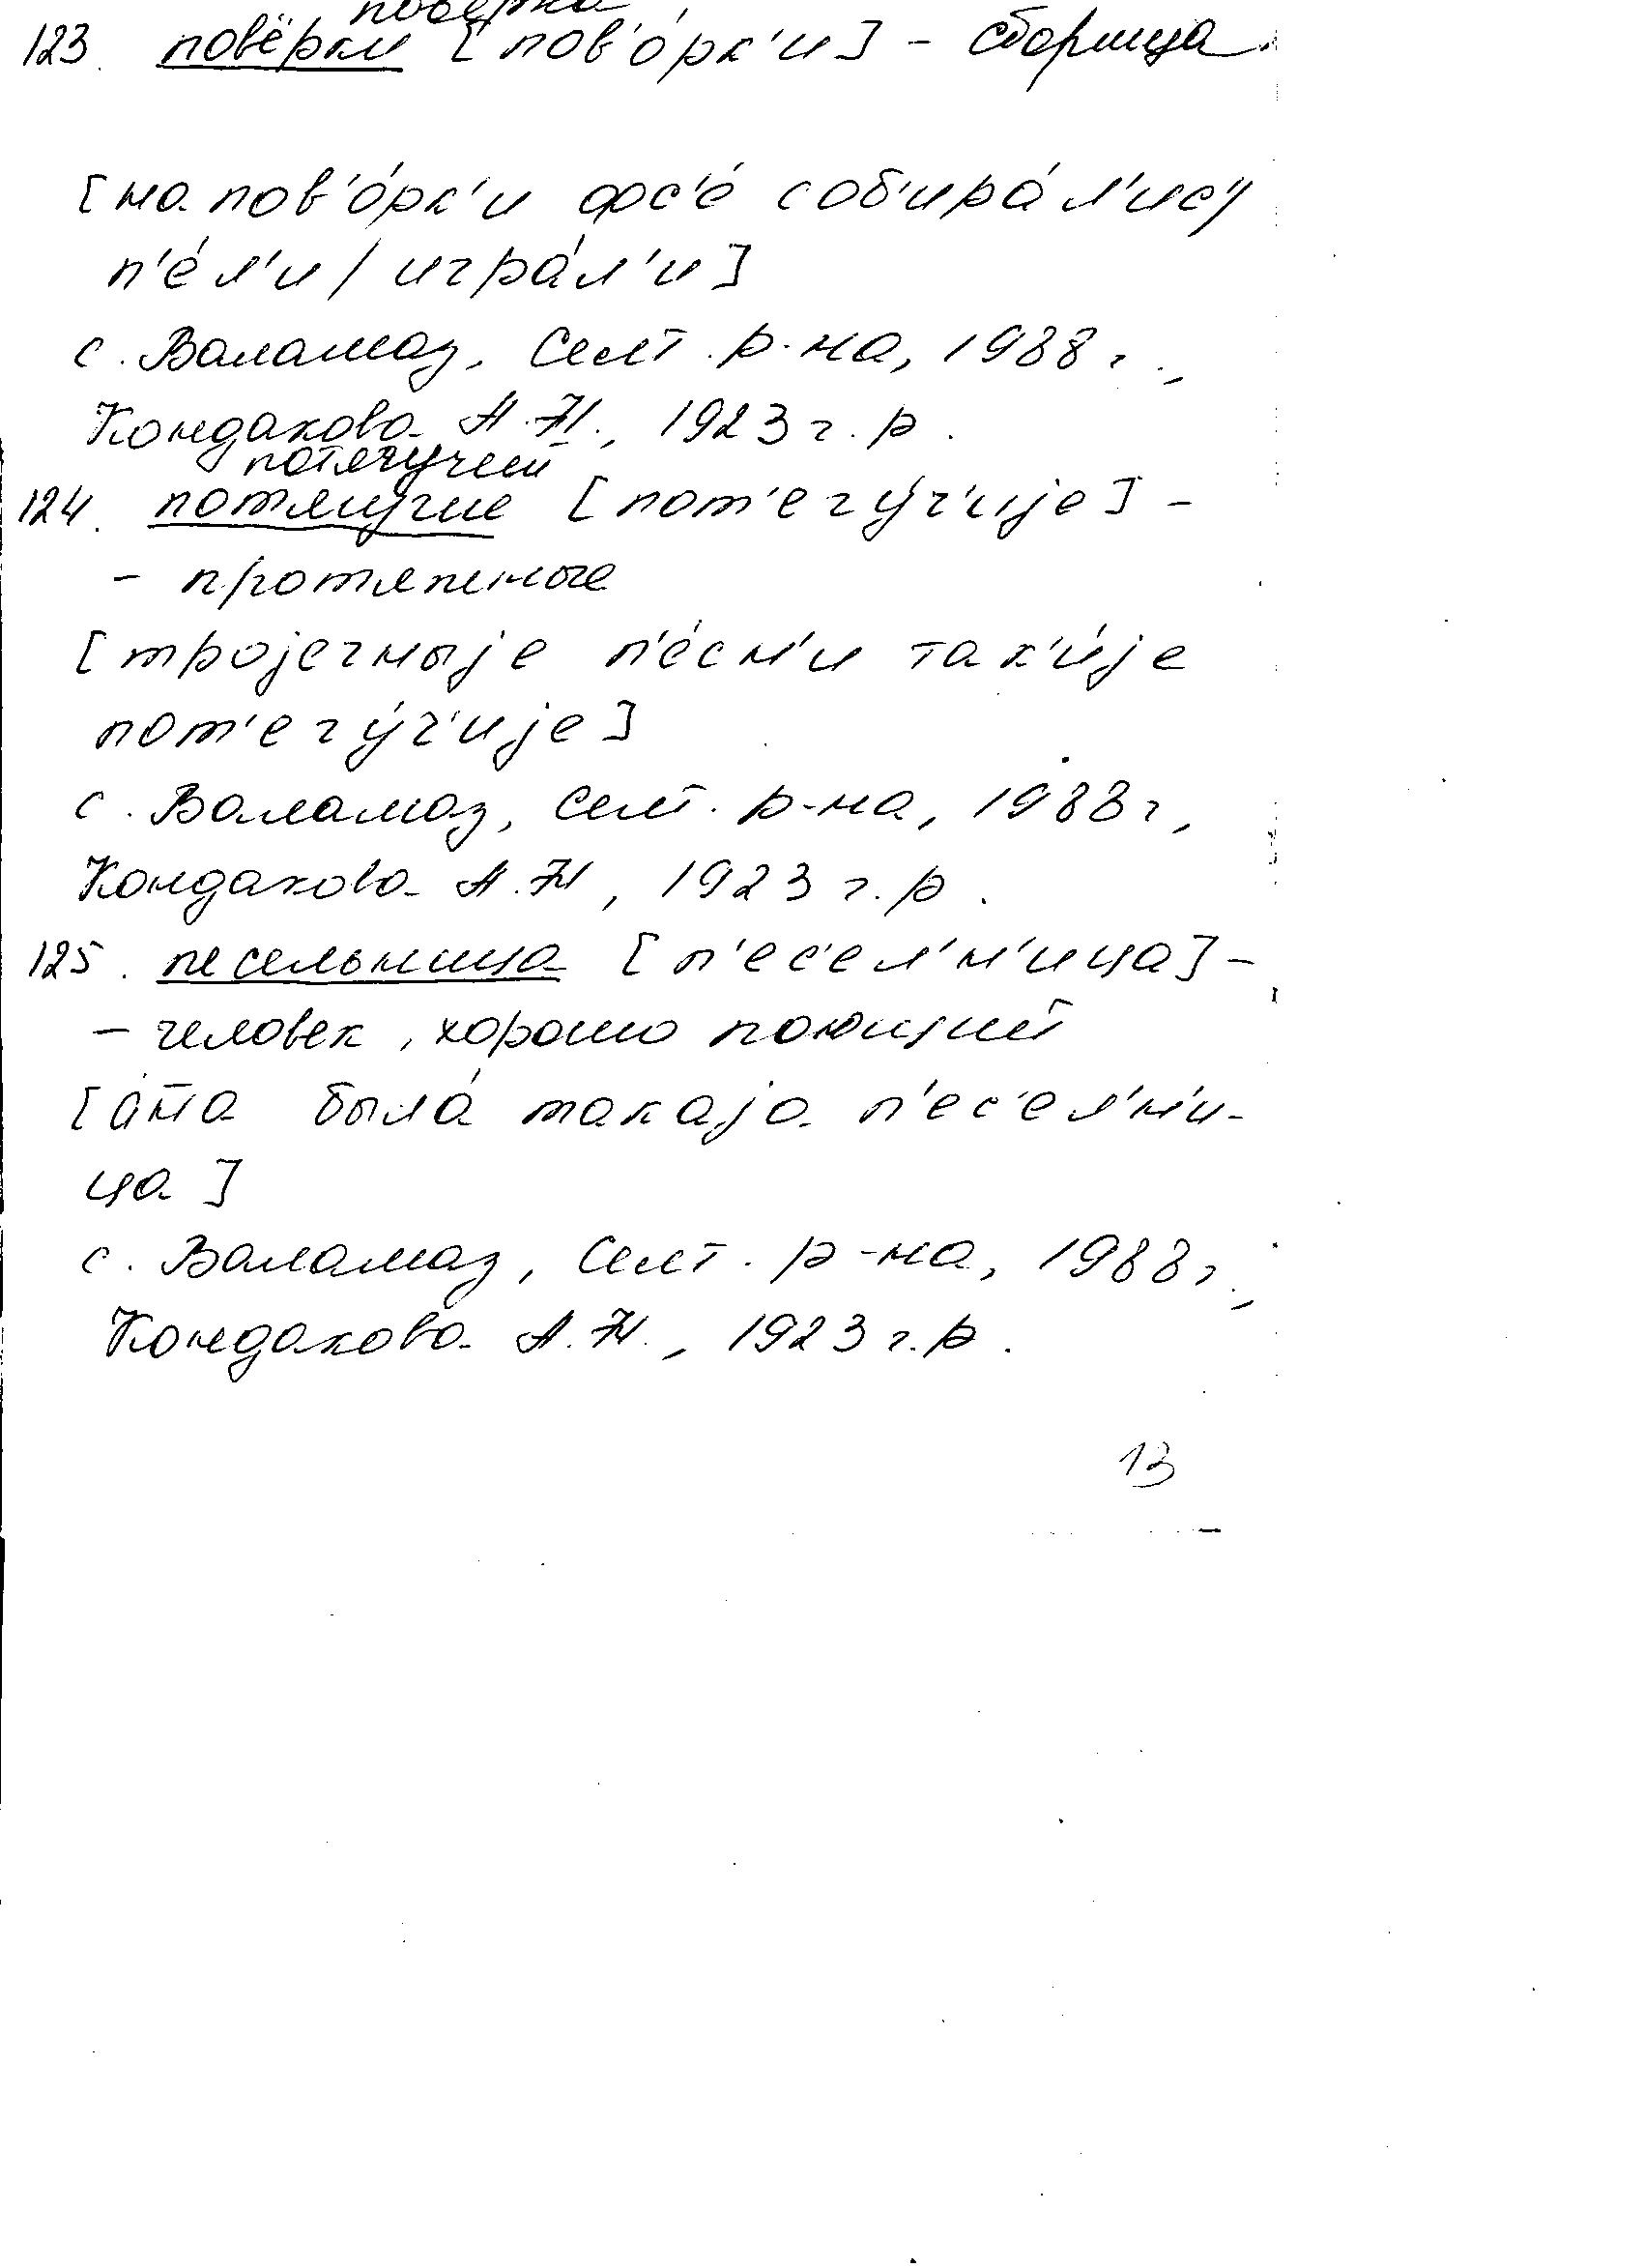 повёрка
123. повёрки [пов'о́рк'и] - сборища
[на пов'о́рк'и фс'е́ соб'ира́л'ис'/
п'е́л'и / игра́л'и]
с. Валамаз, Селт. р-на, 1988 г.,
Кондакова А.Н., 1923 г.р.
потягучий
124. потягучие [пот'егу́ч'ијe] -
- протяжные
[тројечныје п'е́сн'и так'и́је
пот'егу́ч'ије]
с. Валамаз, Селт. р-на, 1988 г,
Кондакова А.Н, 1923 г.р.
125. песельница [п'ес'ел'н'ица] -
- человек, хорошо поющий
была́ такаја п'ес'ел'н'и-
ца]
с. Валамаз, Селт. р-на, 1988 г.,
Кондакова А.Н., 1923 г.р.
13